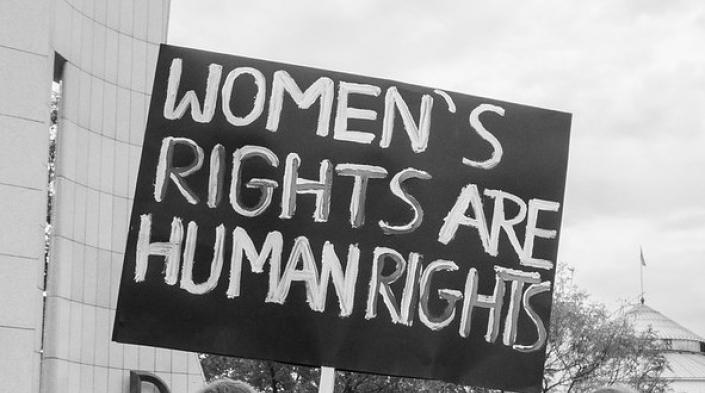 WOMEN`S
RIGHTS ARE
HUMAN RIGHTS